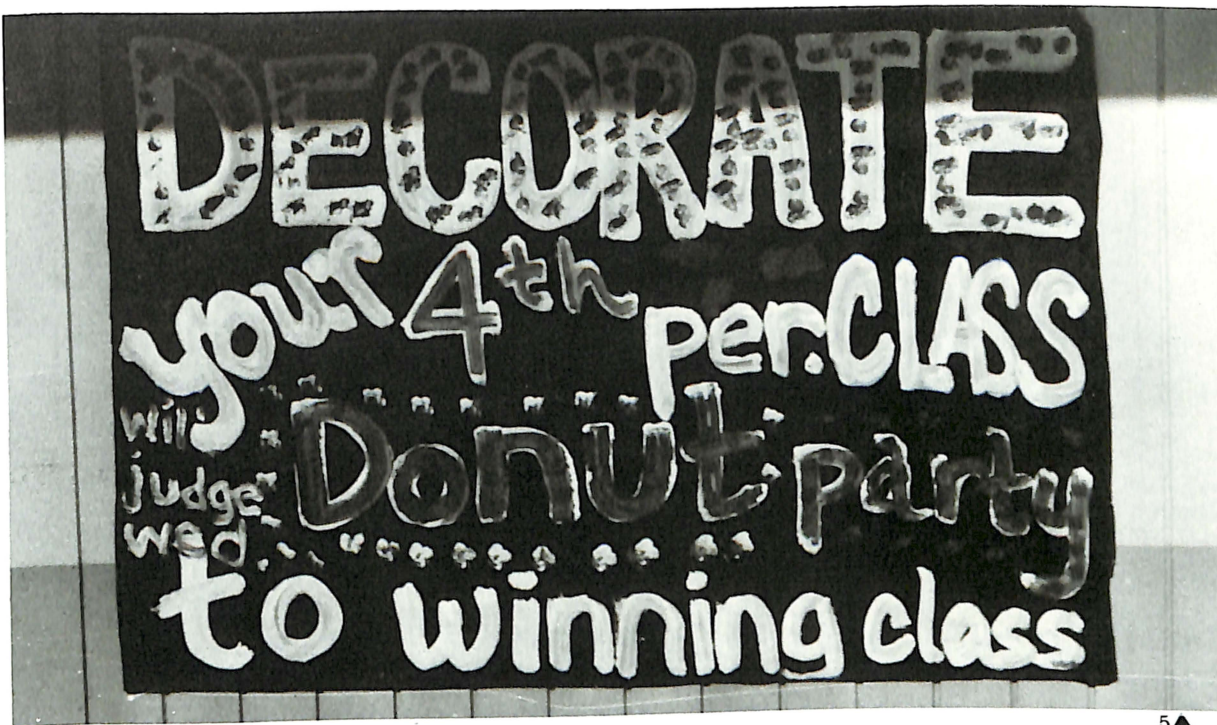 DECORATE
your 4th per. CLASS
will
judge
wed.
Donut party
to winning class
5